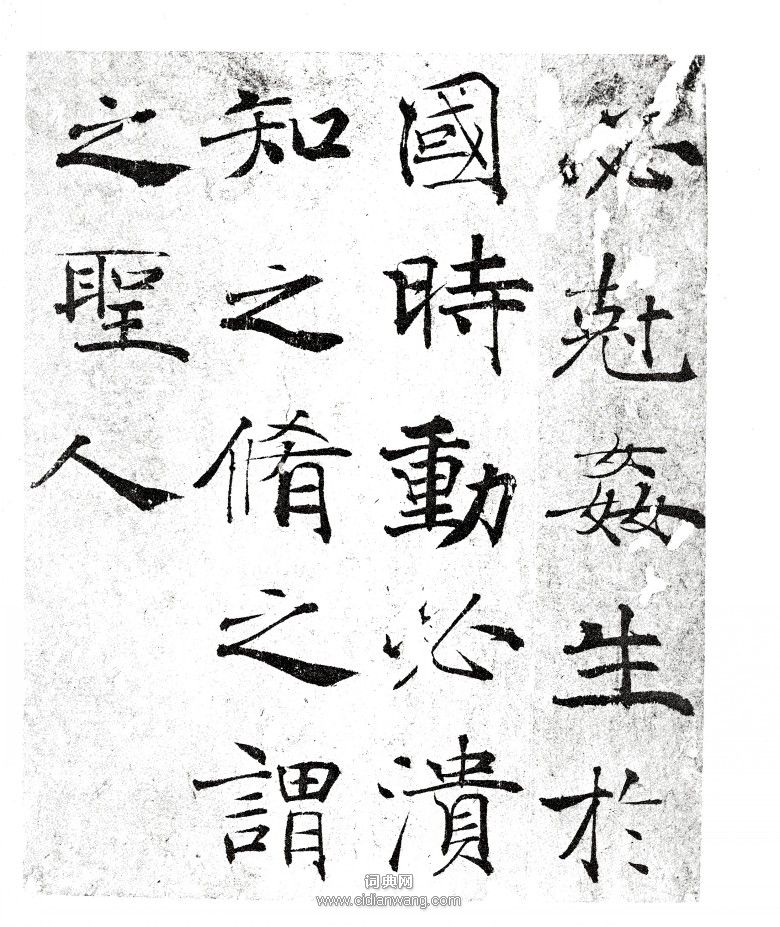 必尅姦生於
國時動必潰
知之脩之謂
之聖人
词典网
www.cidianwang.com